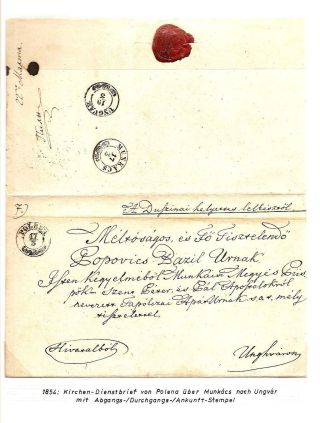 UNGVÁR
MUNKÁCS
A Duszinai helyettes lelkésztől
Méltóságos, és Fő Tisztelendő
Popovics Bazil Urnak
Isten Kegyelméből Munkácsi Megyés Püs
pök
Szent Péter, és Pál Apostolokról
nevezett Tapolczai Apát Urnak s a t. mély
tisztelettel
Hivatalból
Unghváron
1854: Kirchen-Dienstbrief von Polena über Munkács nach Ungvár
mit Abgangs-/Durchgangs-/Ankunft-Stempel